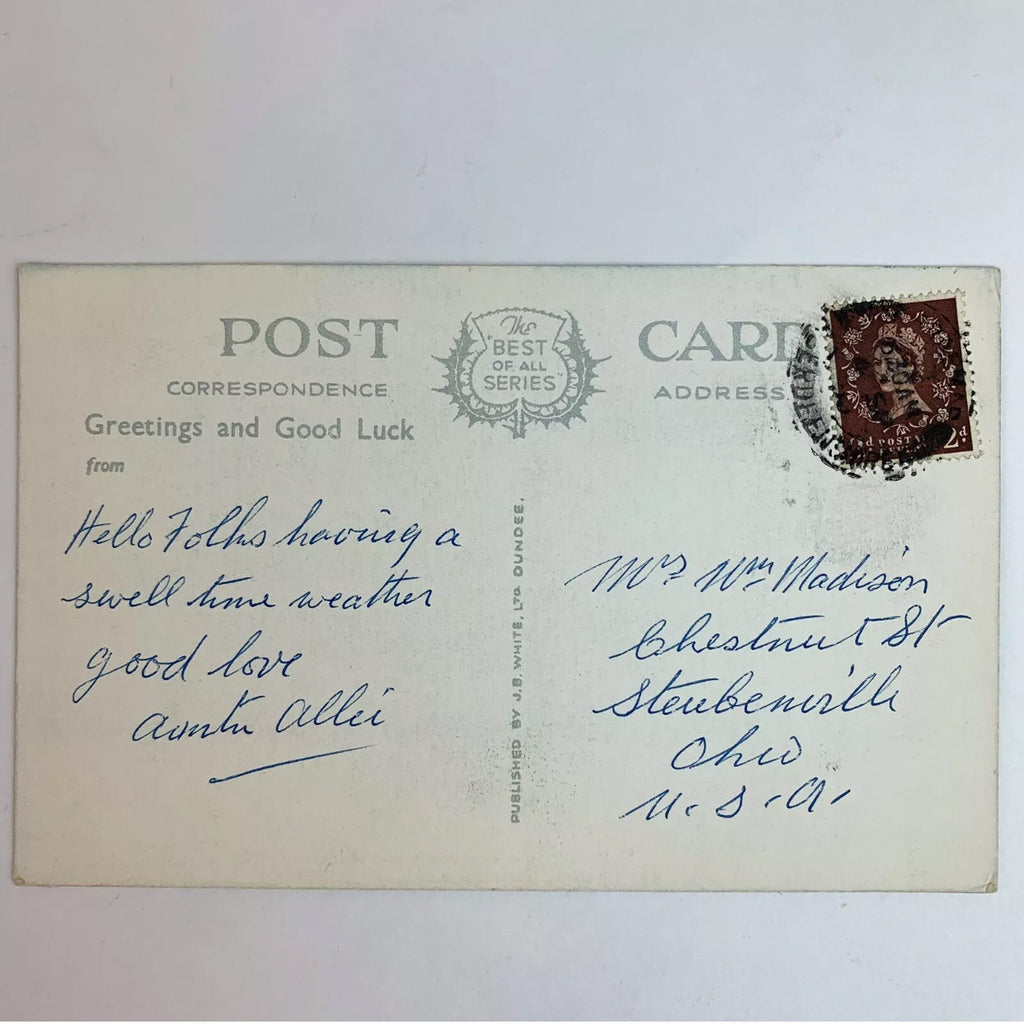 POST CARD
The
"BEST
OF ALL
SERIES"
CORRESPONDENCE
ADDRESS
Greetings and Good Luck
from
Hello Folks having a
swell time weather
good love
Aunty Allie
PUBLISHED BY J.B. WHITE, LTD. DUNDEE.
Mrs Wm Madison
Chestnut St
Steubenville
Ohio
U.S.A.
2d